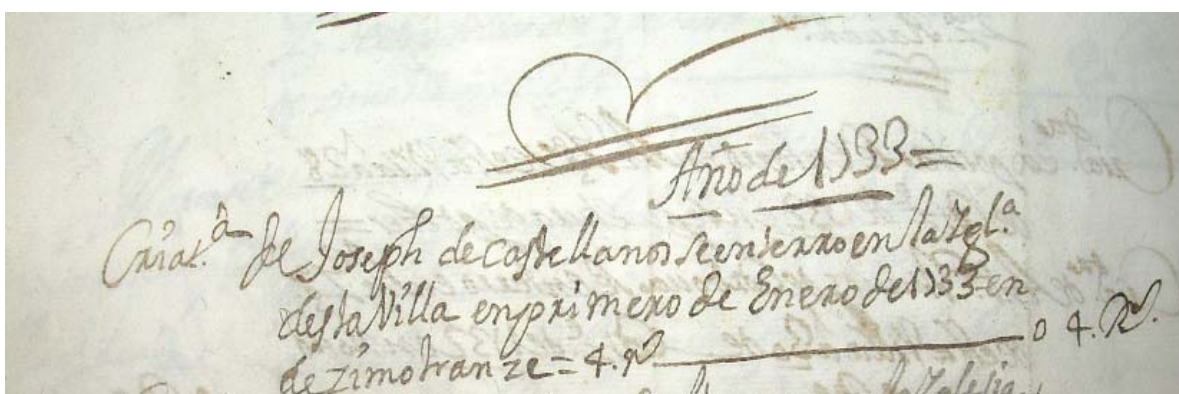 Año de 1733=
Criat.ª de Joseph de Castellanos se enterro en la Igl.ª
desta Villa en primero de Enero de 1733 en
dezimo tranze = 4. Rs. 0 4. Rs.